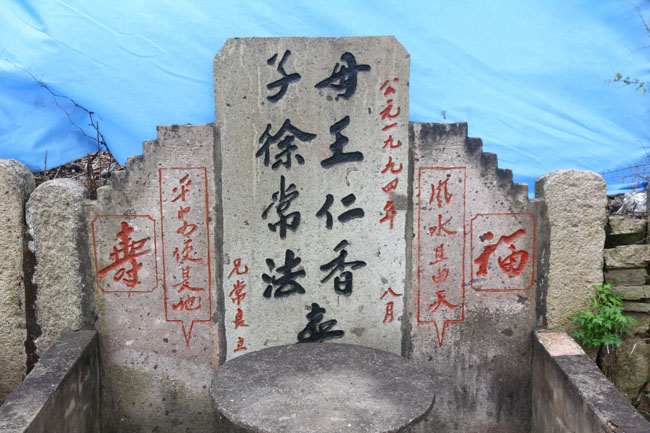 福
風水且由天
公元一九九四年八月
母王仁香
子徐常法
兄常良立
平安便是地
壽